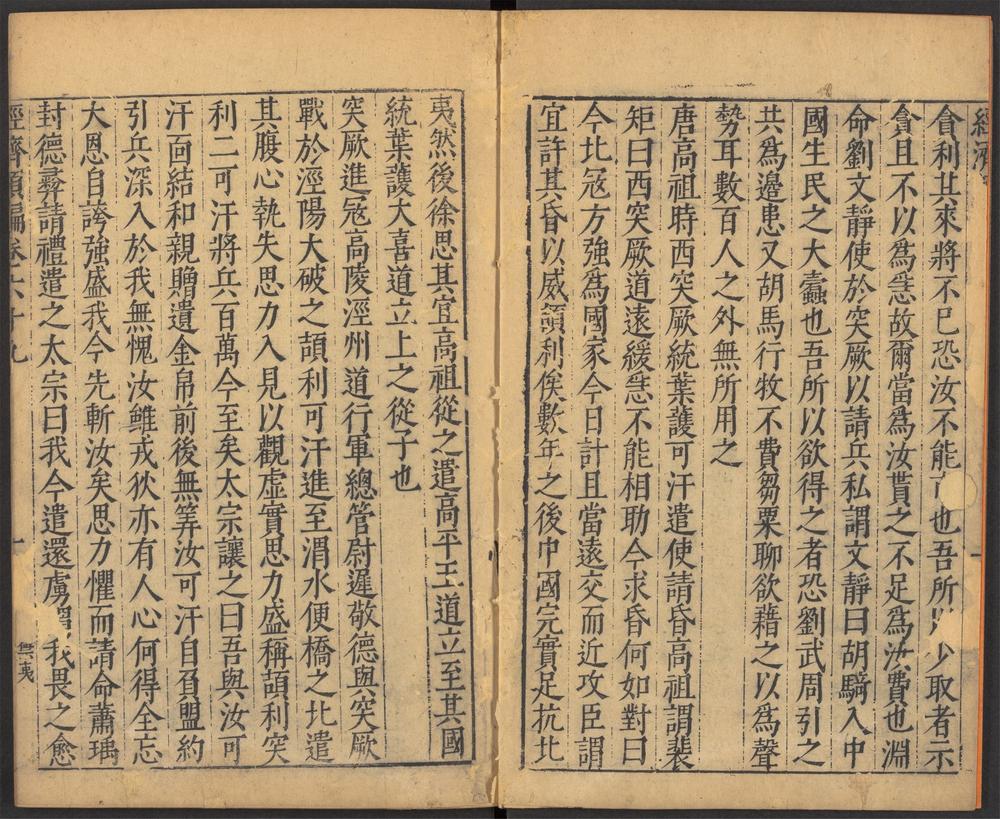 經濟
貪利其來將不已恐汝不能也吾所少取者示
貪且不以為急故爾當為汝貰之不足為汝費也淵
命劉文靜使於突厥以請兵私謂文靜曰胡騎入中
國生民之大蠹也吾所以欲得之者恐劉武周引之
共為邊患又胡馬行牧不費芻粟聊欲藉之以為聲
勢耳數百人之外無所用之
唐高祖時西突厥統葉護可汗遣使請昏高祖謂裴
矩曰西突厥道遠緩急不能相助今求昏何如對曰
今北寇方強為國家今日計且當遠交而近攻臣謂
宜許其昏以威頡利俟數年之後中國完實足抗北
夷然後徐思其宜高祖從之遣高平王道立至其國
統葉護大喜道立上之從子也
突厥進寇高陵涇州道行軍總管尉遲敬德與突厥
戰於涇陽大破之頡利可汗進至渭水便橋之北遣
其腹心執失思力入見以觀虛實思力盛稱頡利突
利二可汗將兵百萬今至矣太宗讓之曰吾與汝可
汗面結和親贈遺金帛前後無筭汝可汗自負盟約
引兵深入於我無愧汝雖戎狄亦有人心何得全忘
大恩自誇強盛我今先斬汝矣思力懼而請命蕭瑀
封德彝請禮遣之太宗曰我今遣還虜我畏之愈
經濟類編卷六十九 一 無夷